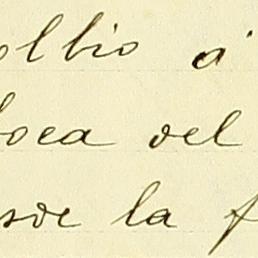 olbio á
boca del
sde la f